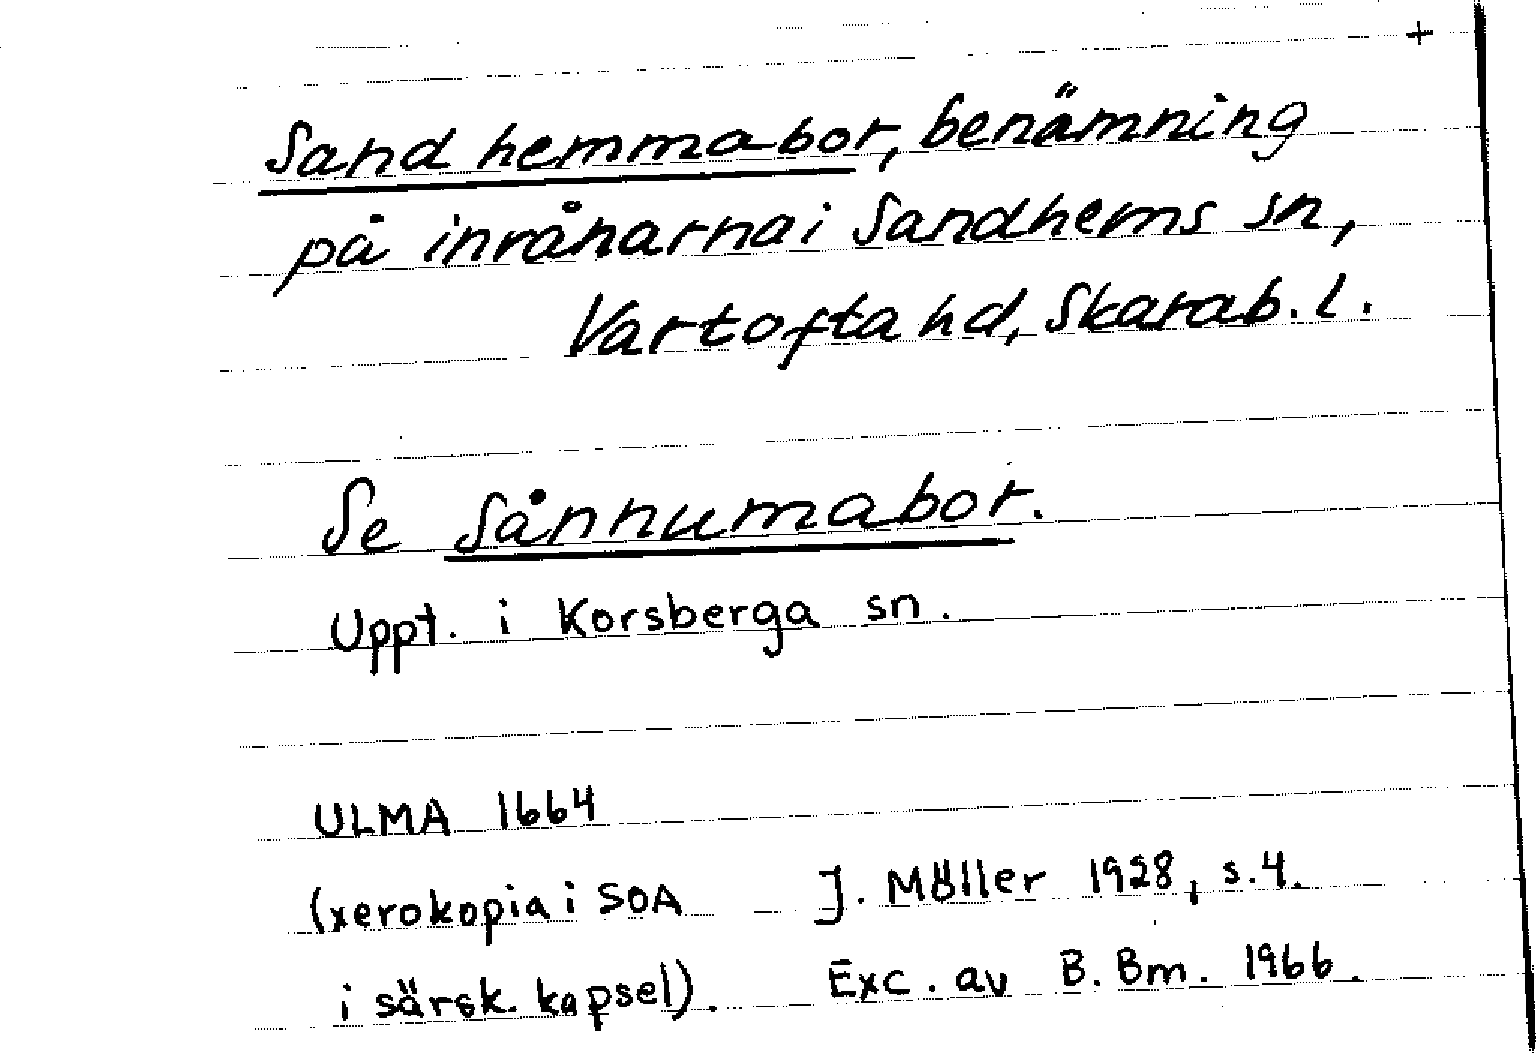 +
Sandhemmabor, benämning
på invånarna i Sandhems sn,
Vartofta hd, Skarab. l.
Se Sånnumabor.
Uppt. i Korsberga sn.
ULMA 1664
(xerokopia i SOA J. Möller 1928, s. 4.
i särsk. kapsel). Exc. av B. Bm. 1966.